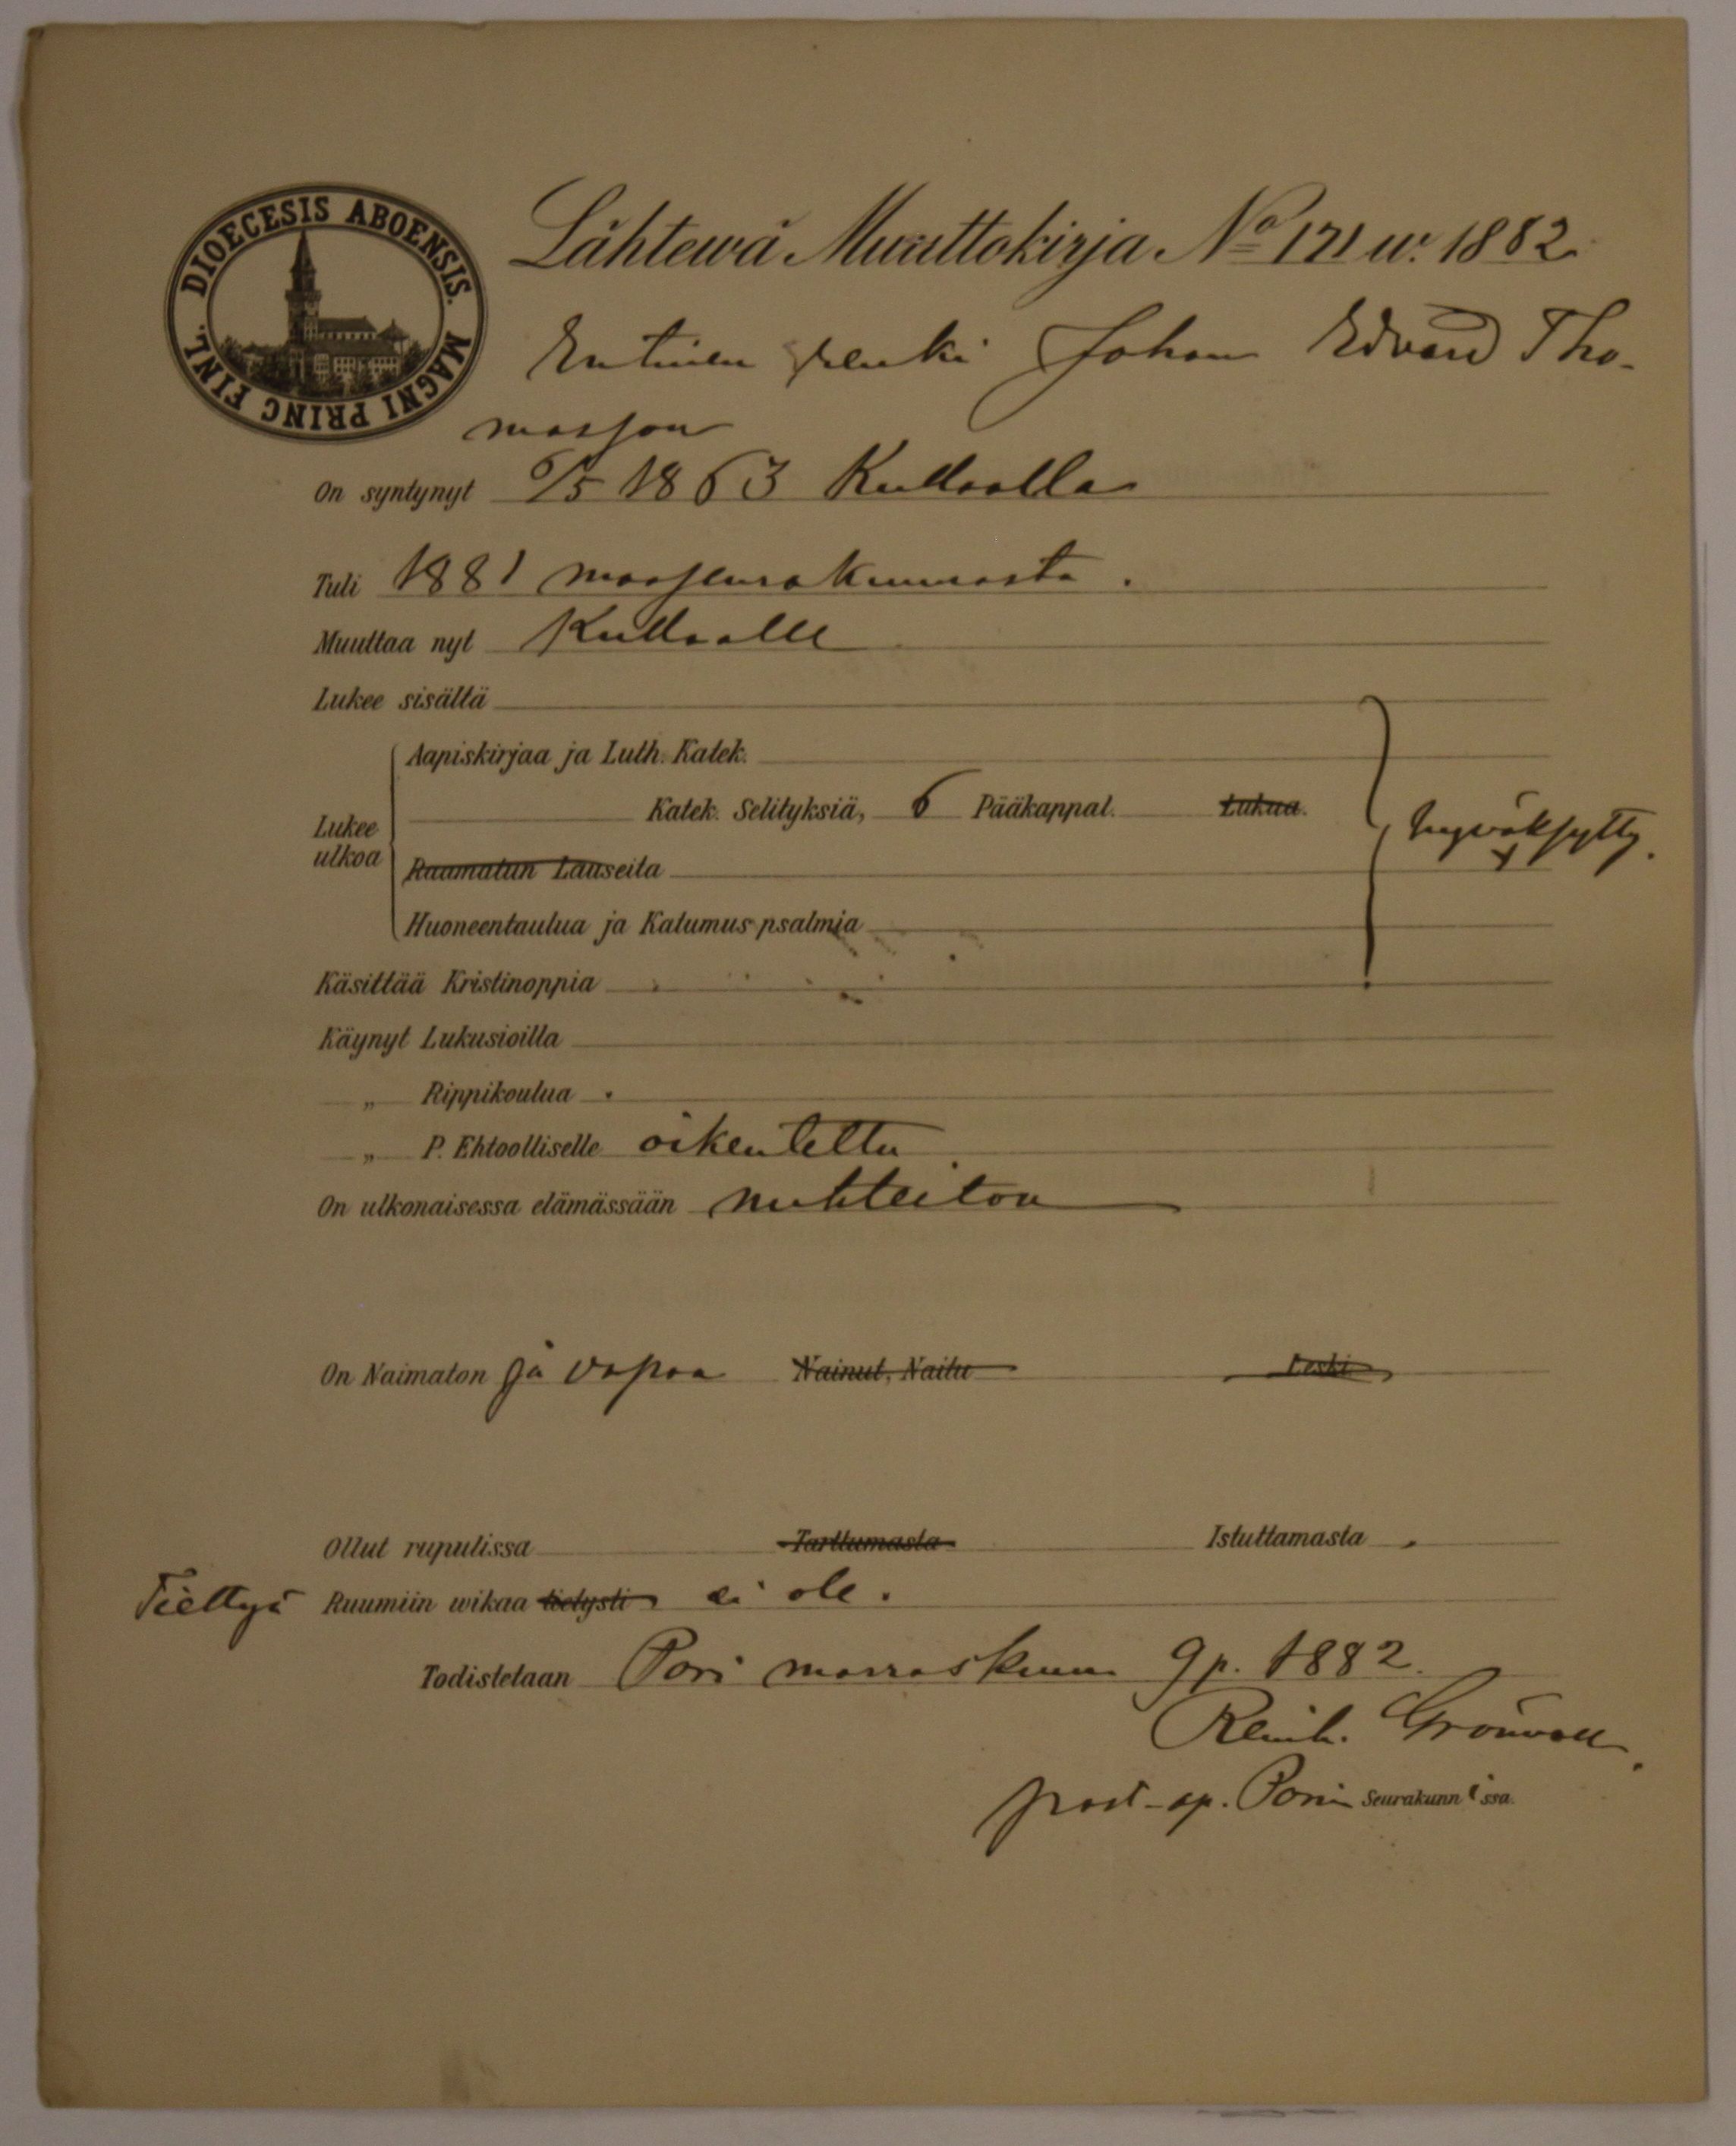 DIOECESIS ABOENSIS. MAGNI PRINC FINL.
Lähtewä Muuttokirja No 171 w. 1882.
Entinen renki Johan Edvard Tho-
masson
On syntynyt 6/5 1863 Kullaalla
Tuli 1881 maaseurakunnasta.
Muuttaa nyt Kullaalle
Lukee sisältä
Aapiskirjaa ja Luth. Katek.
Lukee ulkoa
Katek. Selityksiä, 6 Pääkappal. Lukua. hyväksytty.
Raamatun Lauseita
Huoneentaulua ja Katumus-psalmia
Käsittää Kristinoppia
Käynyt Lukusioilla
„ Rippikoulua
„ P. Ehtoolliselle oikeutettu
On ulkonaisessa elämässään nuhteeton
On Naimaton ja vapaa Nainut, Naitu Leski
Ollut rupulissa Tarttumasta Istuttamasta
Tiettyä Ruumiin wikaa tietysti ei ole.
Todistetaan Pori marraskuun 9 p. 1882.
Reinh. Grönvall
past-ap. Porin Seurakunnissa.